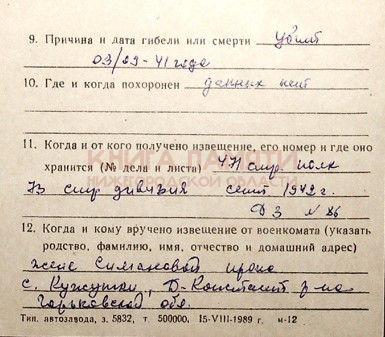 9. Причина и дата гибели или смерти убит
03/09-41 года
10. Где и когда похоронен данных нет
11. Когда и от кого получено извещение, его номер и где оно
хранится (№ дела и листа) 471 стр. полк
73 стр дивизии сент 1942 г.
Д 3 № 86
КНИГА ПАМЯТИ
НИЖЕГОРОДСКОЙ ОБЛАСТИ
12. Когда и кому вручено извещение от военкомата (указать
родство, фамилию, имя, отчество и домашний адрес)
жене Симановой
с. Кужутки, Д-Констант. р-на
Горьковской обл.
Тип. автозавода, з. 5832, т. 500000. 15-VIII-1989 г. м-12